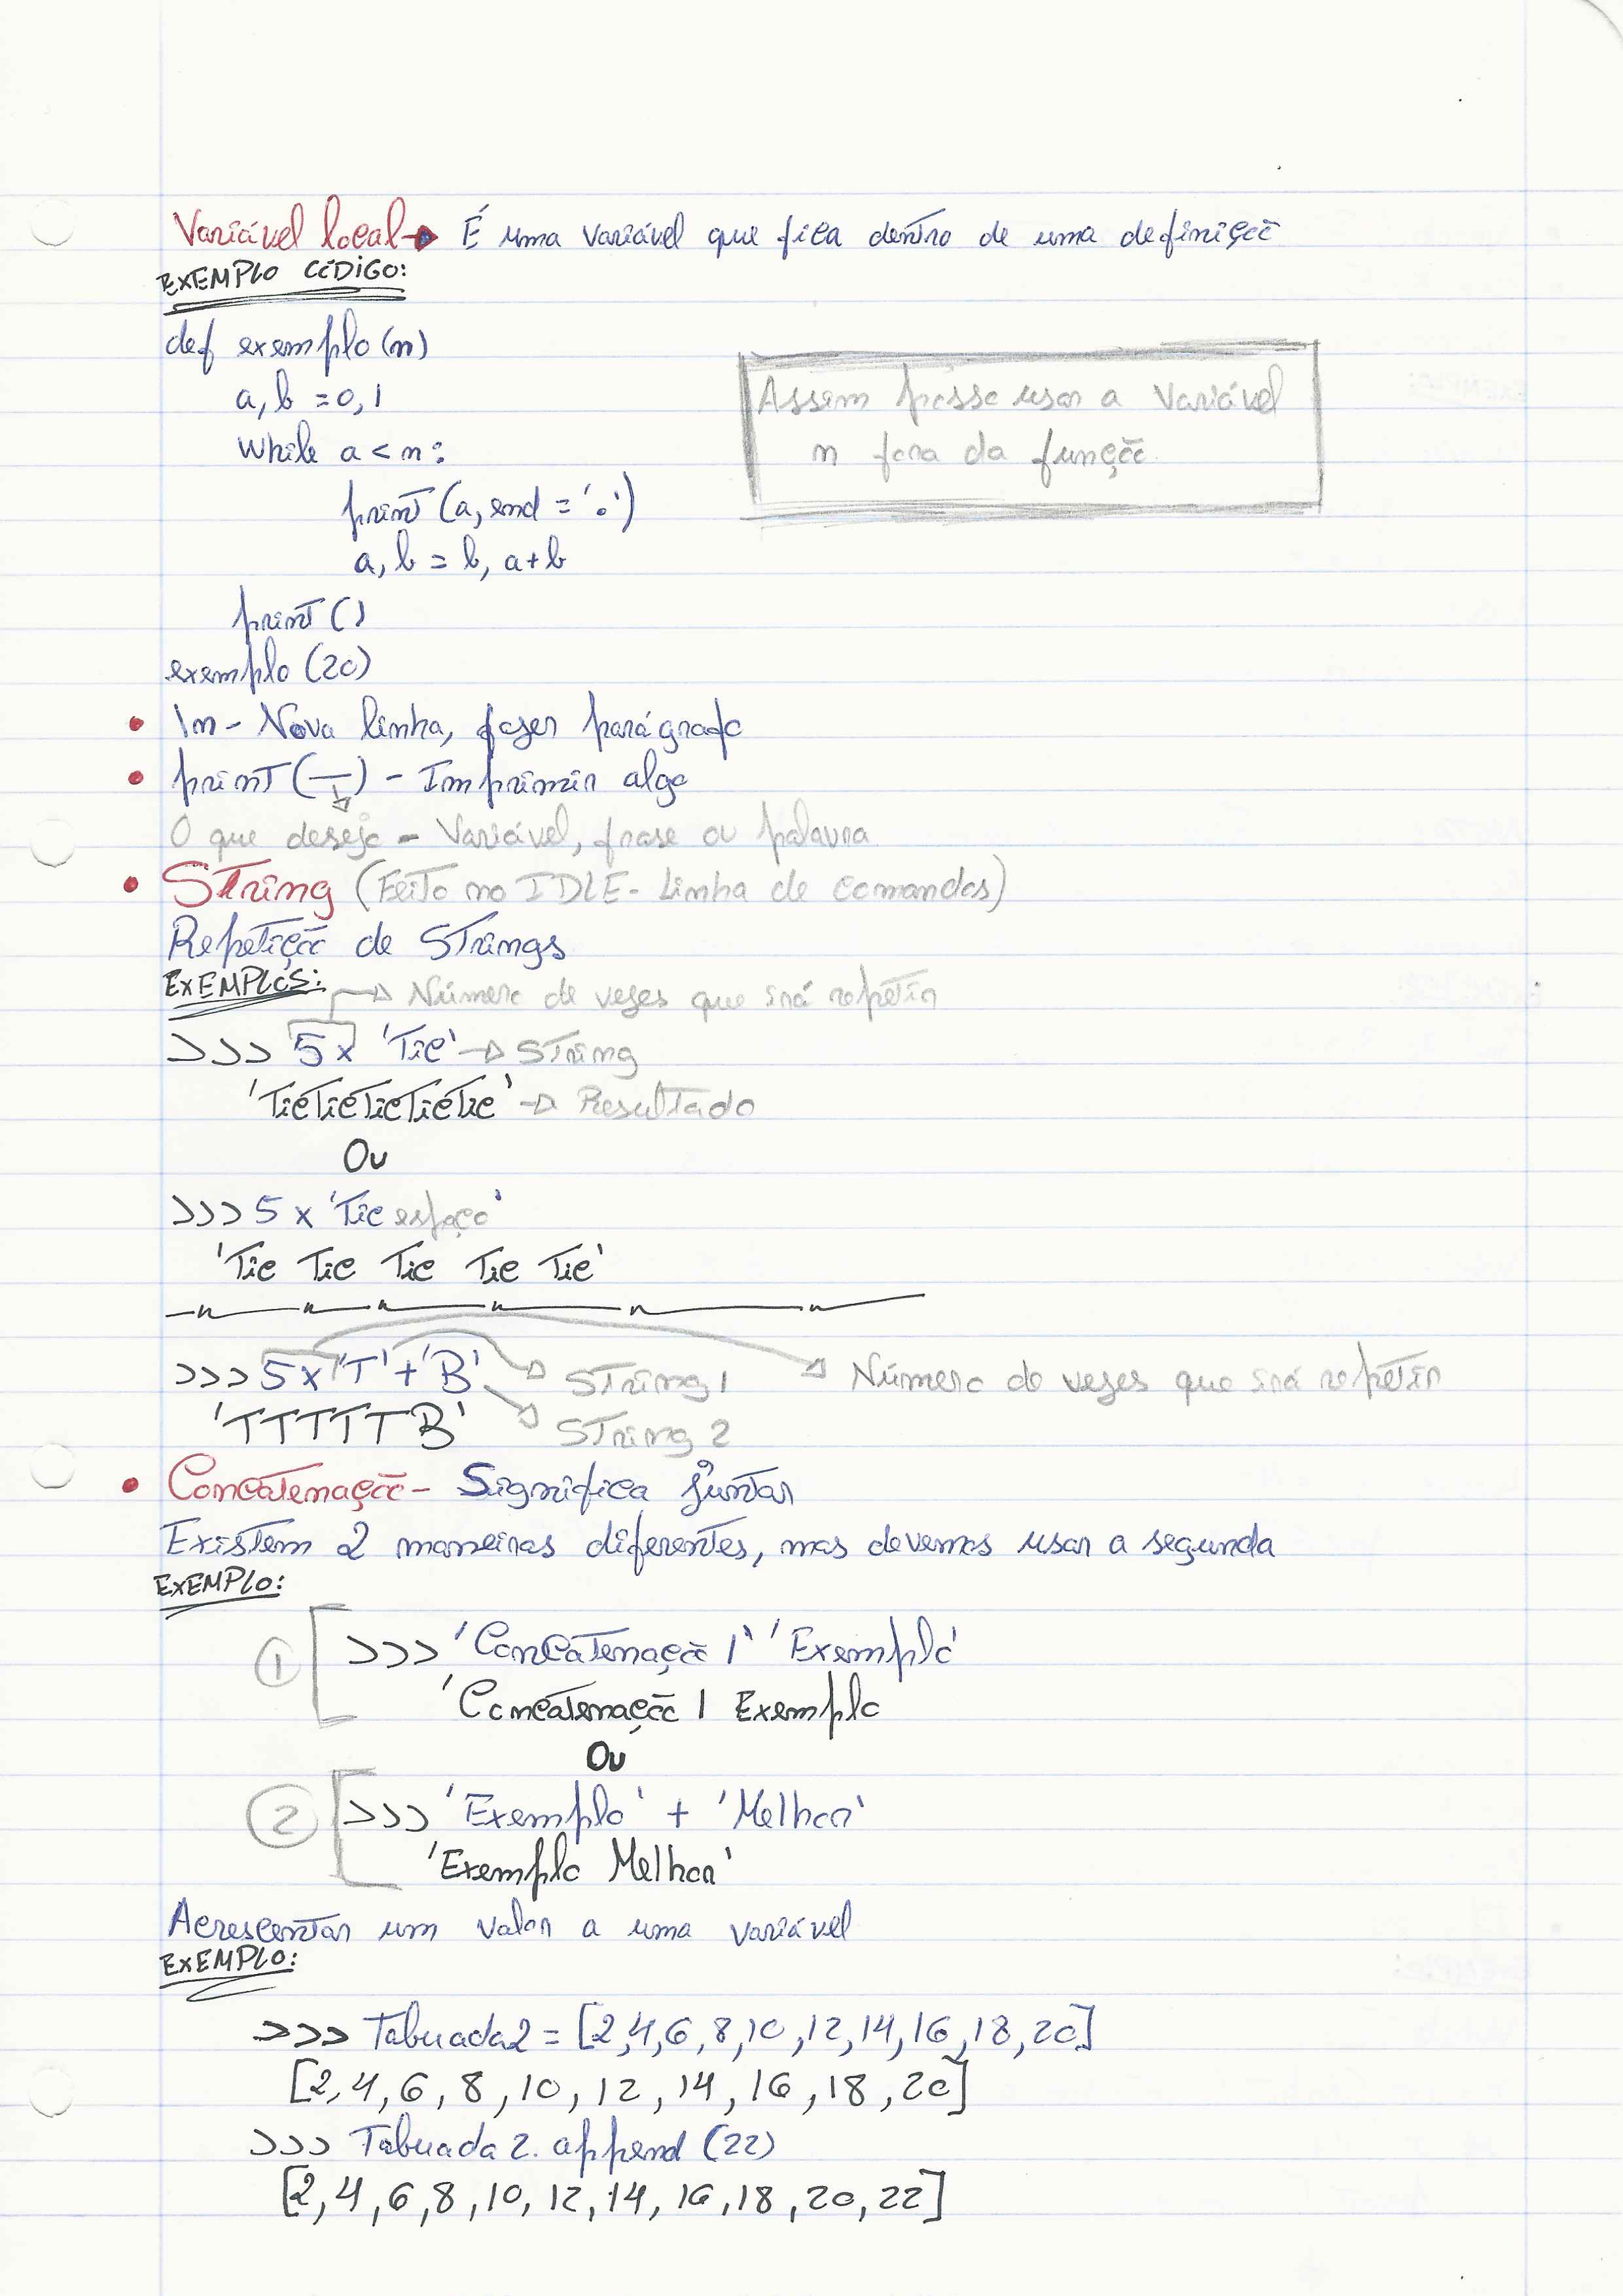 Variável local → É uma variável que fica dentro de uma definição
EXEMPLO CÓDIGO:
def exemplo (n)
a, b = 0, 1
While a < n:
Assim posso usar a variável
n fora da função
print (a, end = ':')
a, b = b, a+b
print ()
exemplo (20)
• \n - Nova linha, fazer parágrafo
• print (—) - Imprimir algo
O que deseja - Variável, frase ou palavra
• String (Feito no IDLE - Linha de comandos)
Repetição de Strings
EXEMPLOS:
→ Número de vezes que irá repetir
>>> 5x 'Tic' → String
'TicTicTicTicTic' → Resultado
Ou
>>> 5 x 'Tic espaço'
'Tic Tic Tic Tic Tic'
>>> 5x 'T' + 'B' → String 1 → Número de vezes que irá repetir
'TTTTTB' → String 2
• Concatenação - Significa juntar
Existem 2 maneiras diferentes, mas devemos usar a segunda
EXEMPLO:
① >>> 'Concatenação 1' 'Exemplo'
'Concatenação 1 Exemplo
Ou
② >>> 'Exemplo' + 'Melhor'
'Exemplo Melhor'
Acrescentar um valor a uma variável
EXEMPLO:
>>> Tabuada2 = [2,4,6,8,10,12,14,16,18,20]
[2,4,6,8,10,12,14,16,18,20]
>>> Tabuada2.append (22)
[2,4,6,8,10,12,14,16,18,20,22]